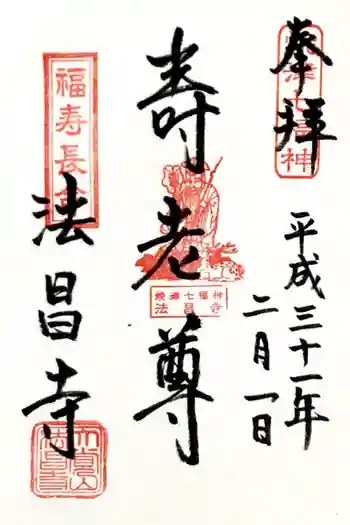 奉拝
平成三十一年
二月一日
寿老尊
焼津七福神
法昌寺
福寿長
法昌寺